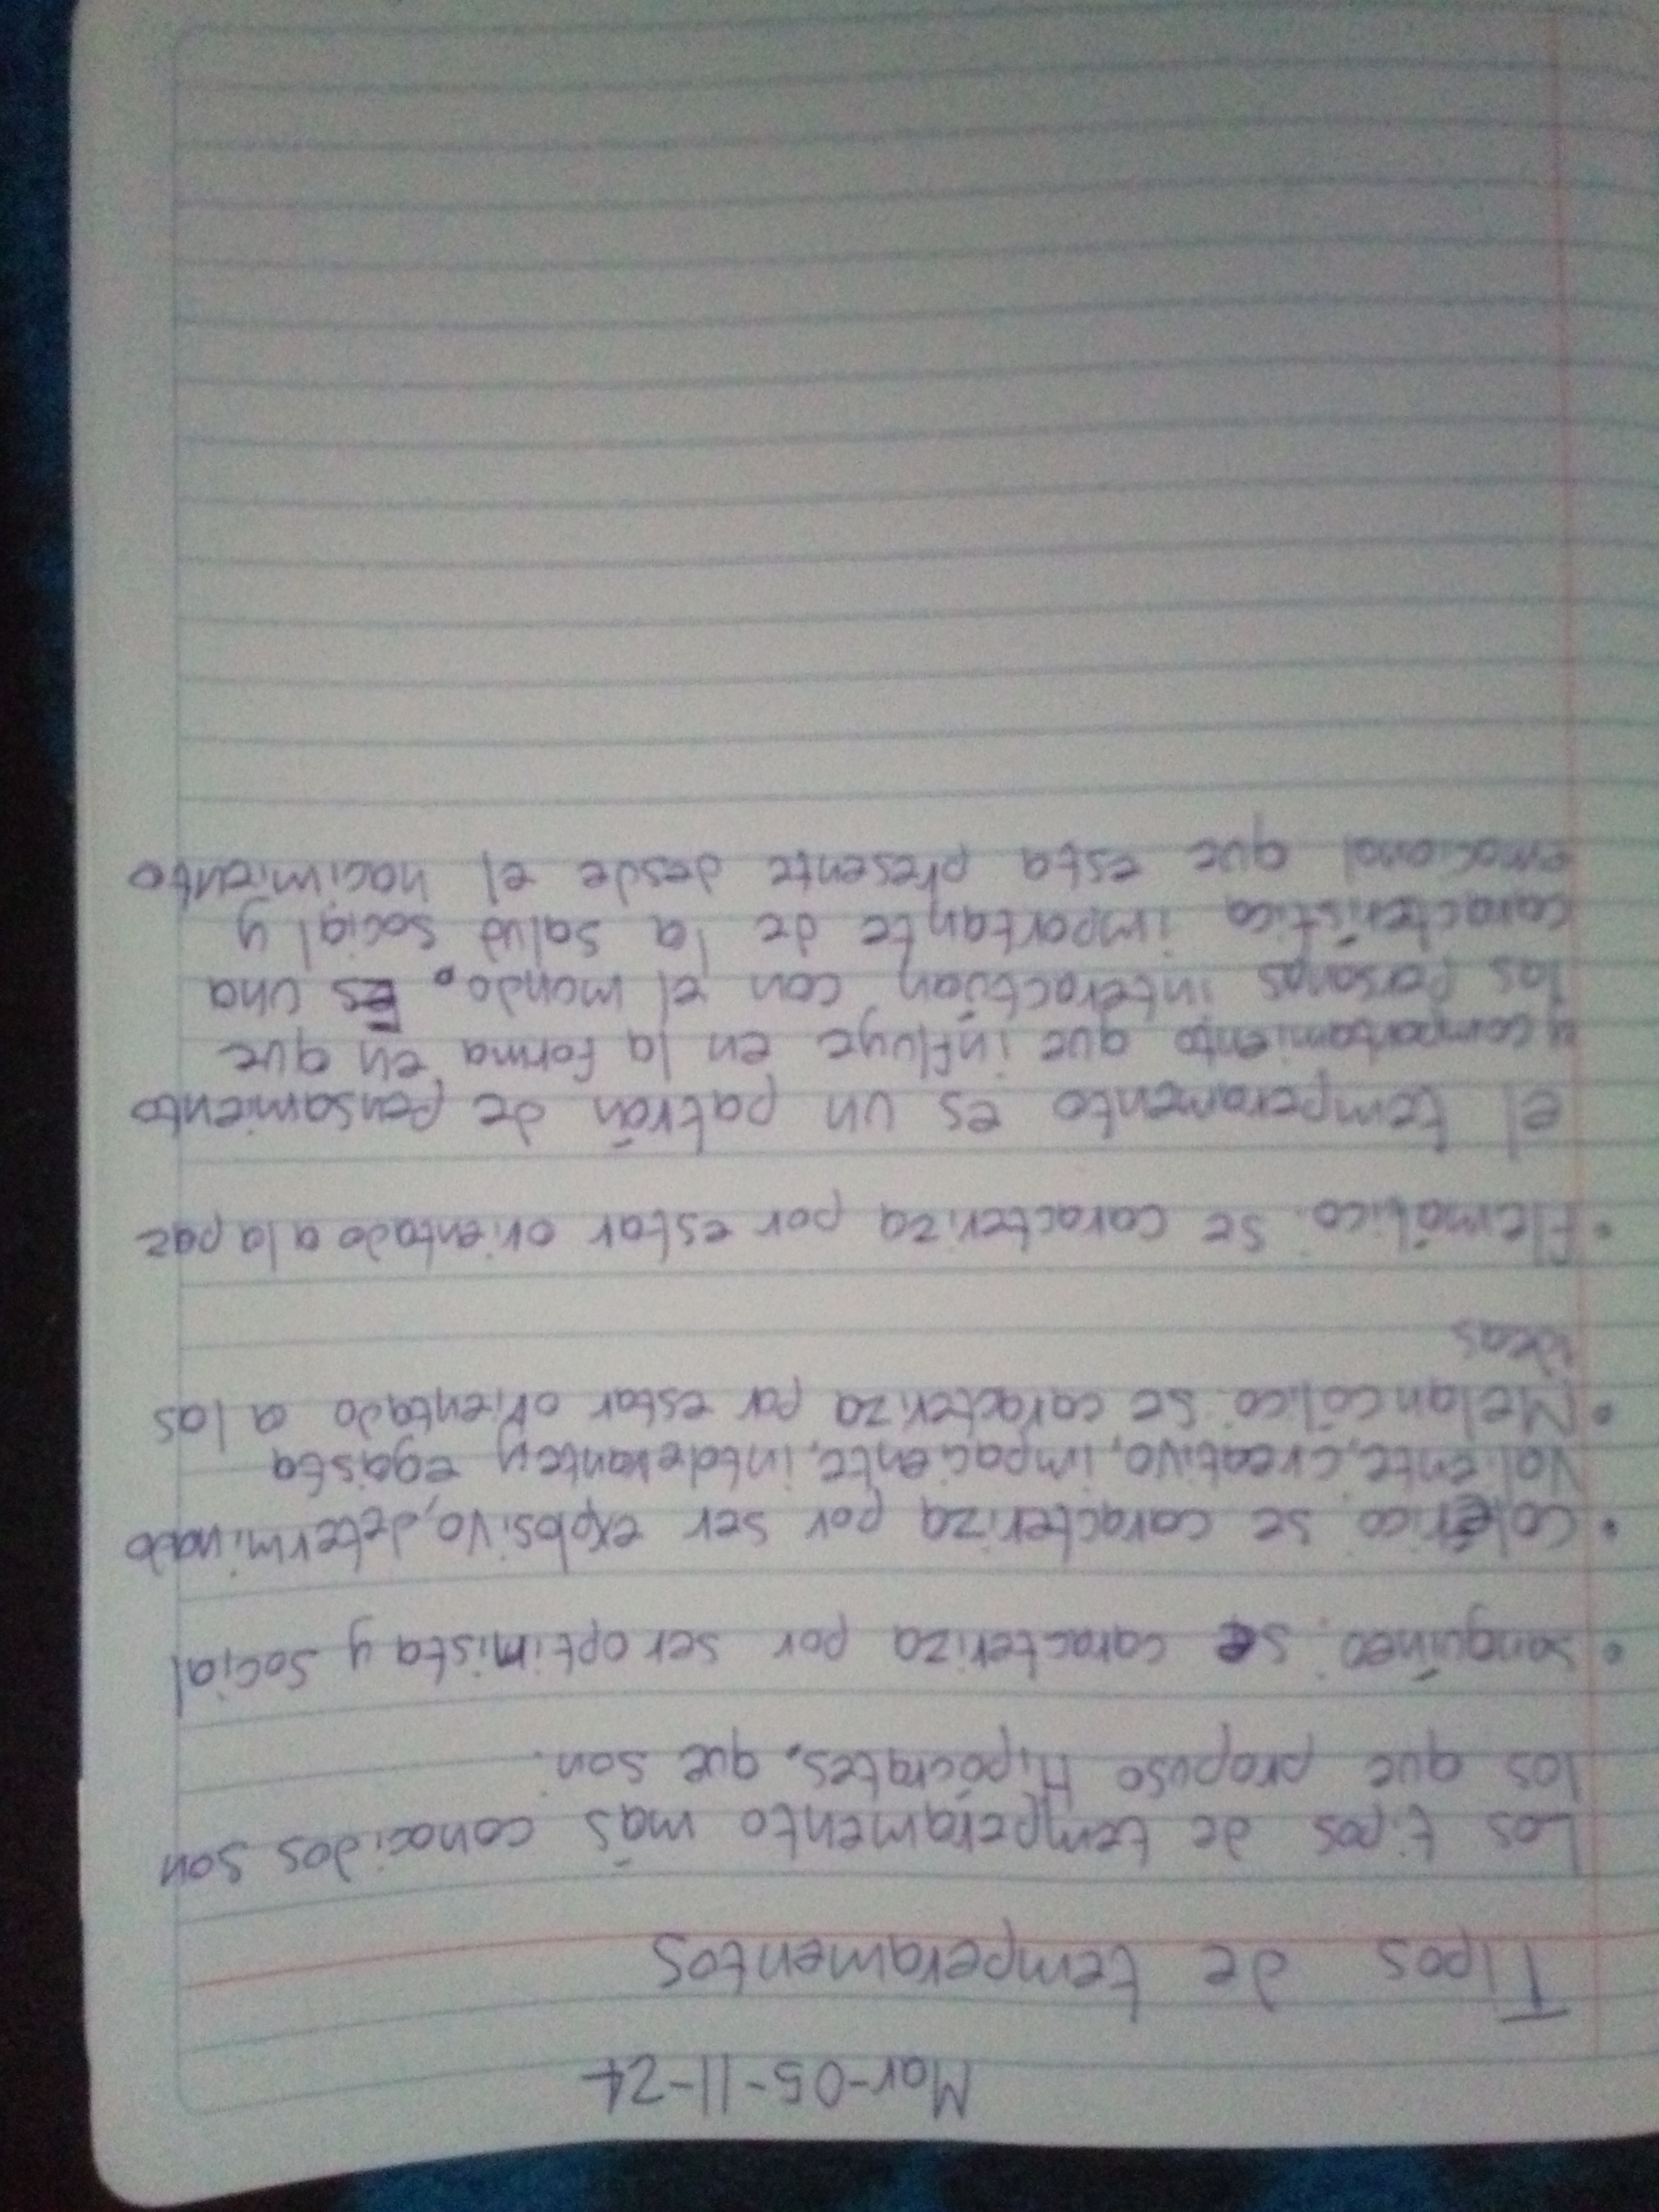 Mar-05-11-24
Tipos de temperamentos
Los tipos de temperamento más conocidos son
los que propuso Hipócrates, que son:
• sanguíneo: se caracteriza por ser optimista y social
• colérico: se caracteriza por ser explosivo, determinado
valiente, creativo, impaciente, intolerante y egoista
• Melancólico: se caracteriza por estar orientado a las
ideas
• Flemático: se caracteriza por estar orientado a la paz
el temperamento es un patrón de pensamiento
y comportamiento que influye en la forma en que
las personas interactúan con el mundo. Es una
característica importante de la salud social y
emocional que esta presente desde el nacimiento